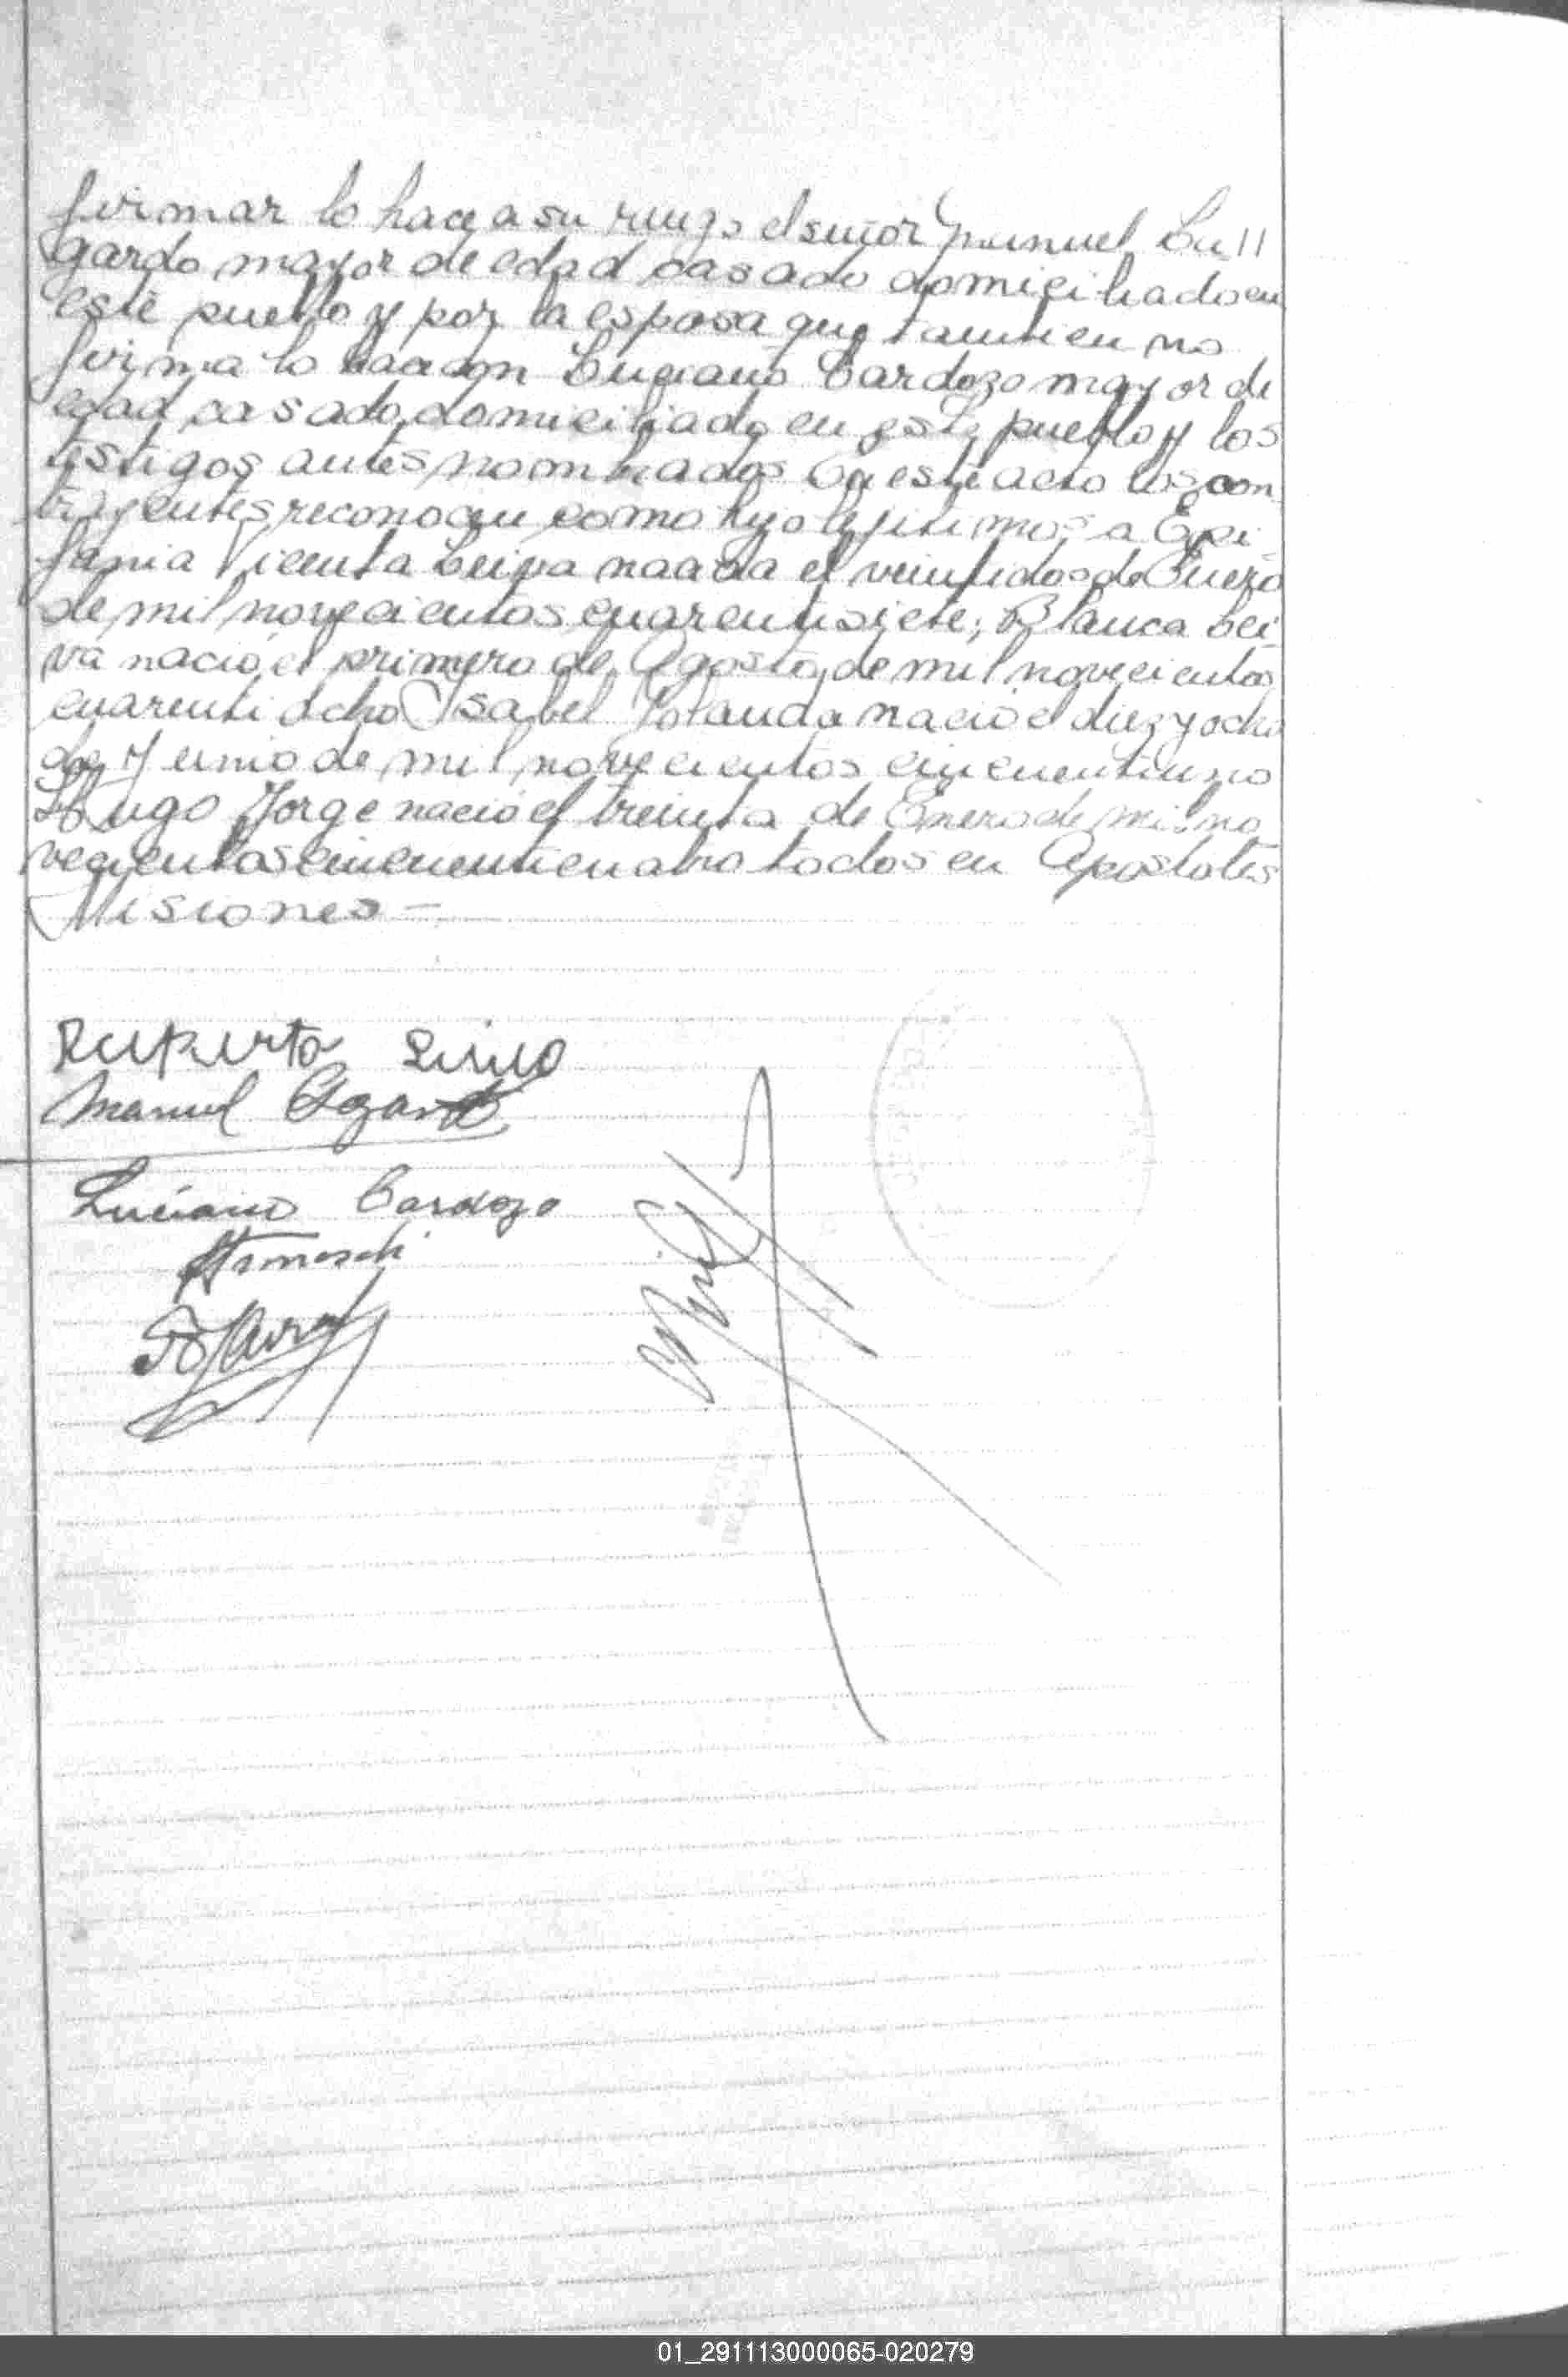 firmar lo hace a su ruego el señor Manuel Lu
gardo mayor de edad casado domiciliado en
este pueblo y por la esposa que tambien no
firma lo hace don Luciano Cardozo mayor de
edad casado domiciliado en este pueblo y los
testigos antes nombrados En este acto los con
trayentes reconocen como hijo lejitimos a Epi-
fania Vicenta Leiva nacida el veintidos de Enero
de mil novecientos cuarentisiete; Blanca Lei
va nació el primero de Agosto de mil novecientos
cuarentiocho Isabel Yolanda nació el diez y ocho
de Junio de mil novecientos cincuentiuno
Hugo Jorge nació el treinta de Enero de mil no
vecientos cincuenticuatro todos en Apostoles
Misiones -
Ruperto
Manuel
Luciano Cardozo
01_291113000065-020279